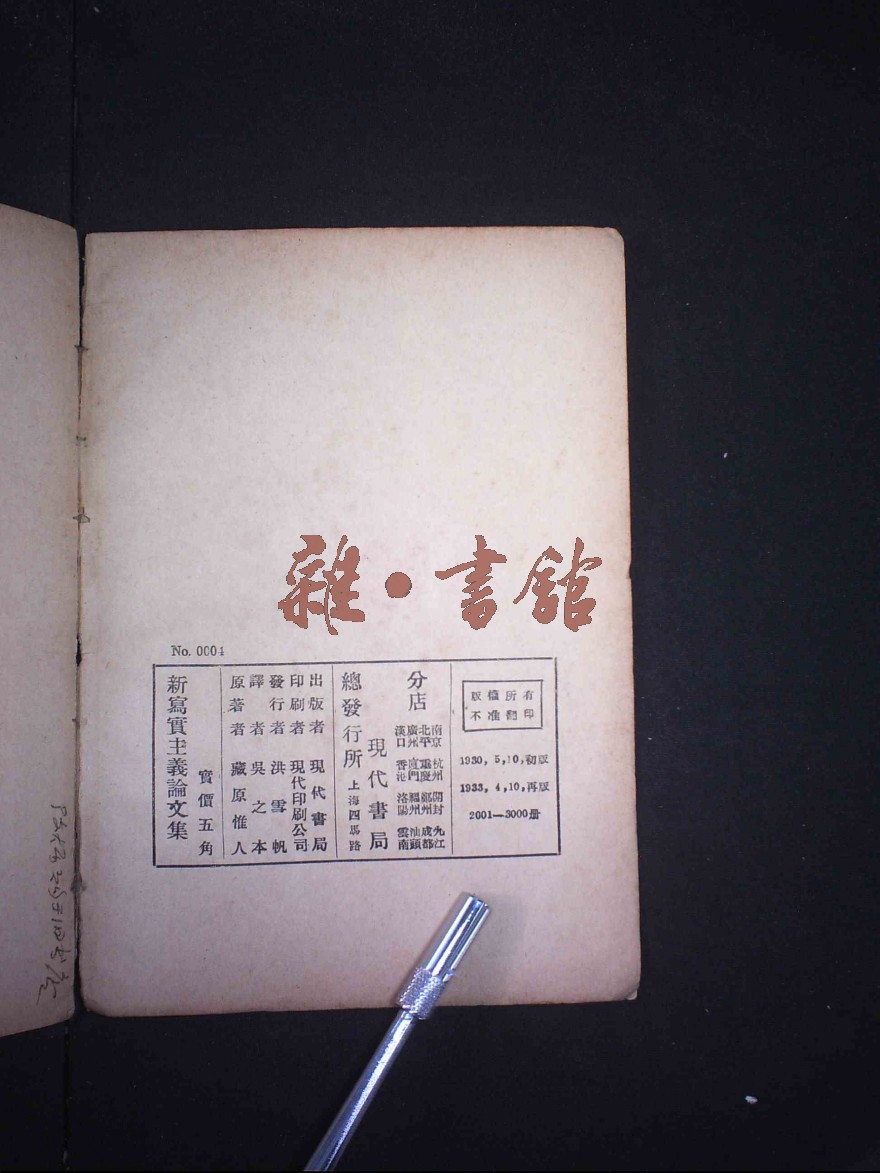 雜·書館
No. 0004
版權所有
不准翻印
1930, 5, 10, 初版
1933, 4, 10, 再版
2001—3000册
分店
南京 杭州 開封 九江
北平 重慶 鄭州 成都
廣州 廈門 福州 汕頭
漢口 香港 洛陽 雲南
現代書局
總發行所 上海四馬路
出版者 現代書局
印刷者 現代印刷公司
發行者 洪雪帆
譯者 吳之本
原著者 藏原惟人
實價五角
新寫實主義論文集